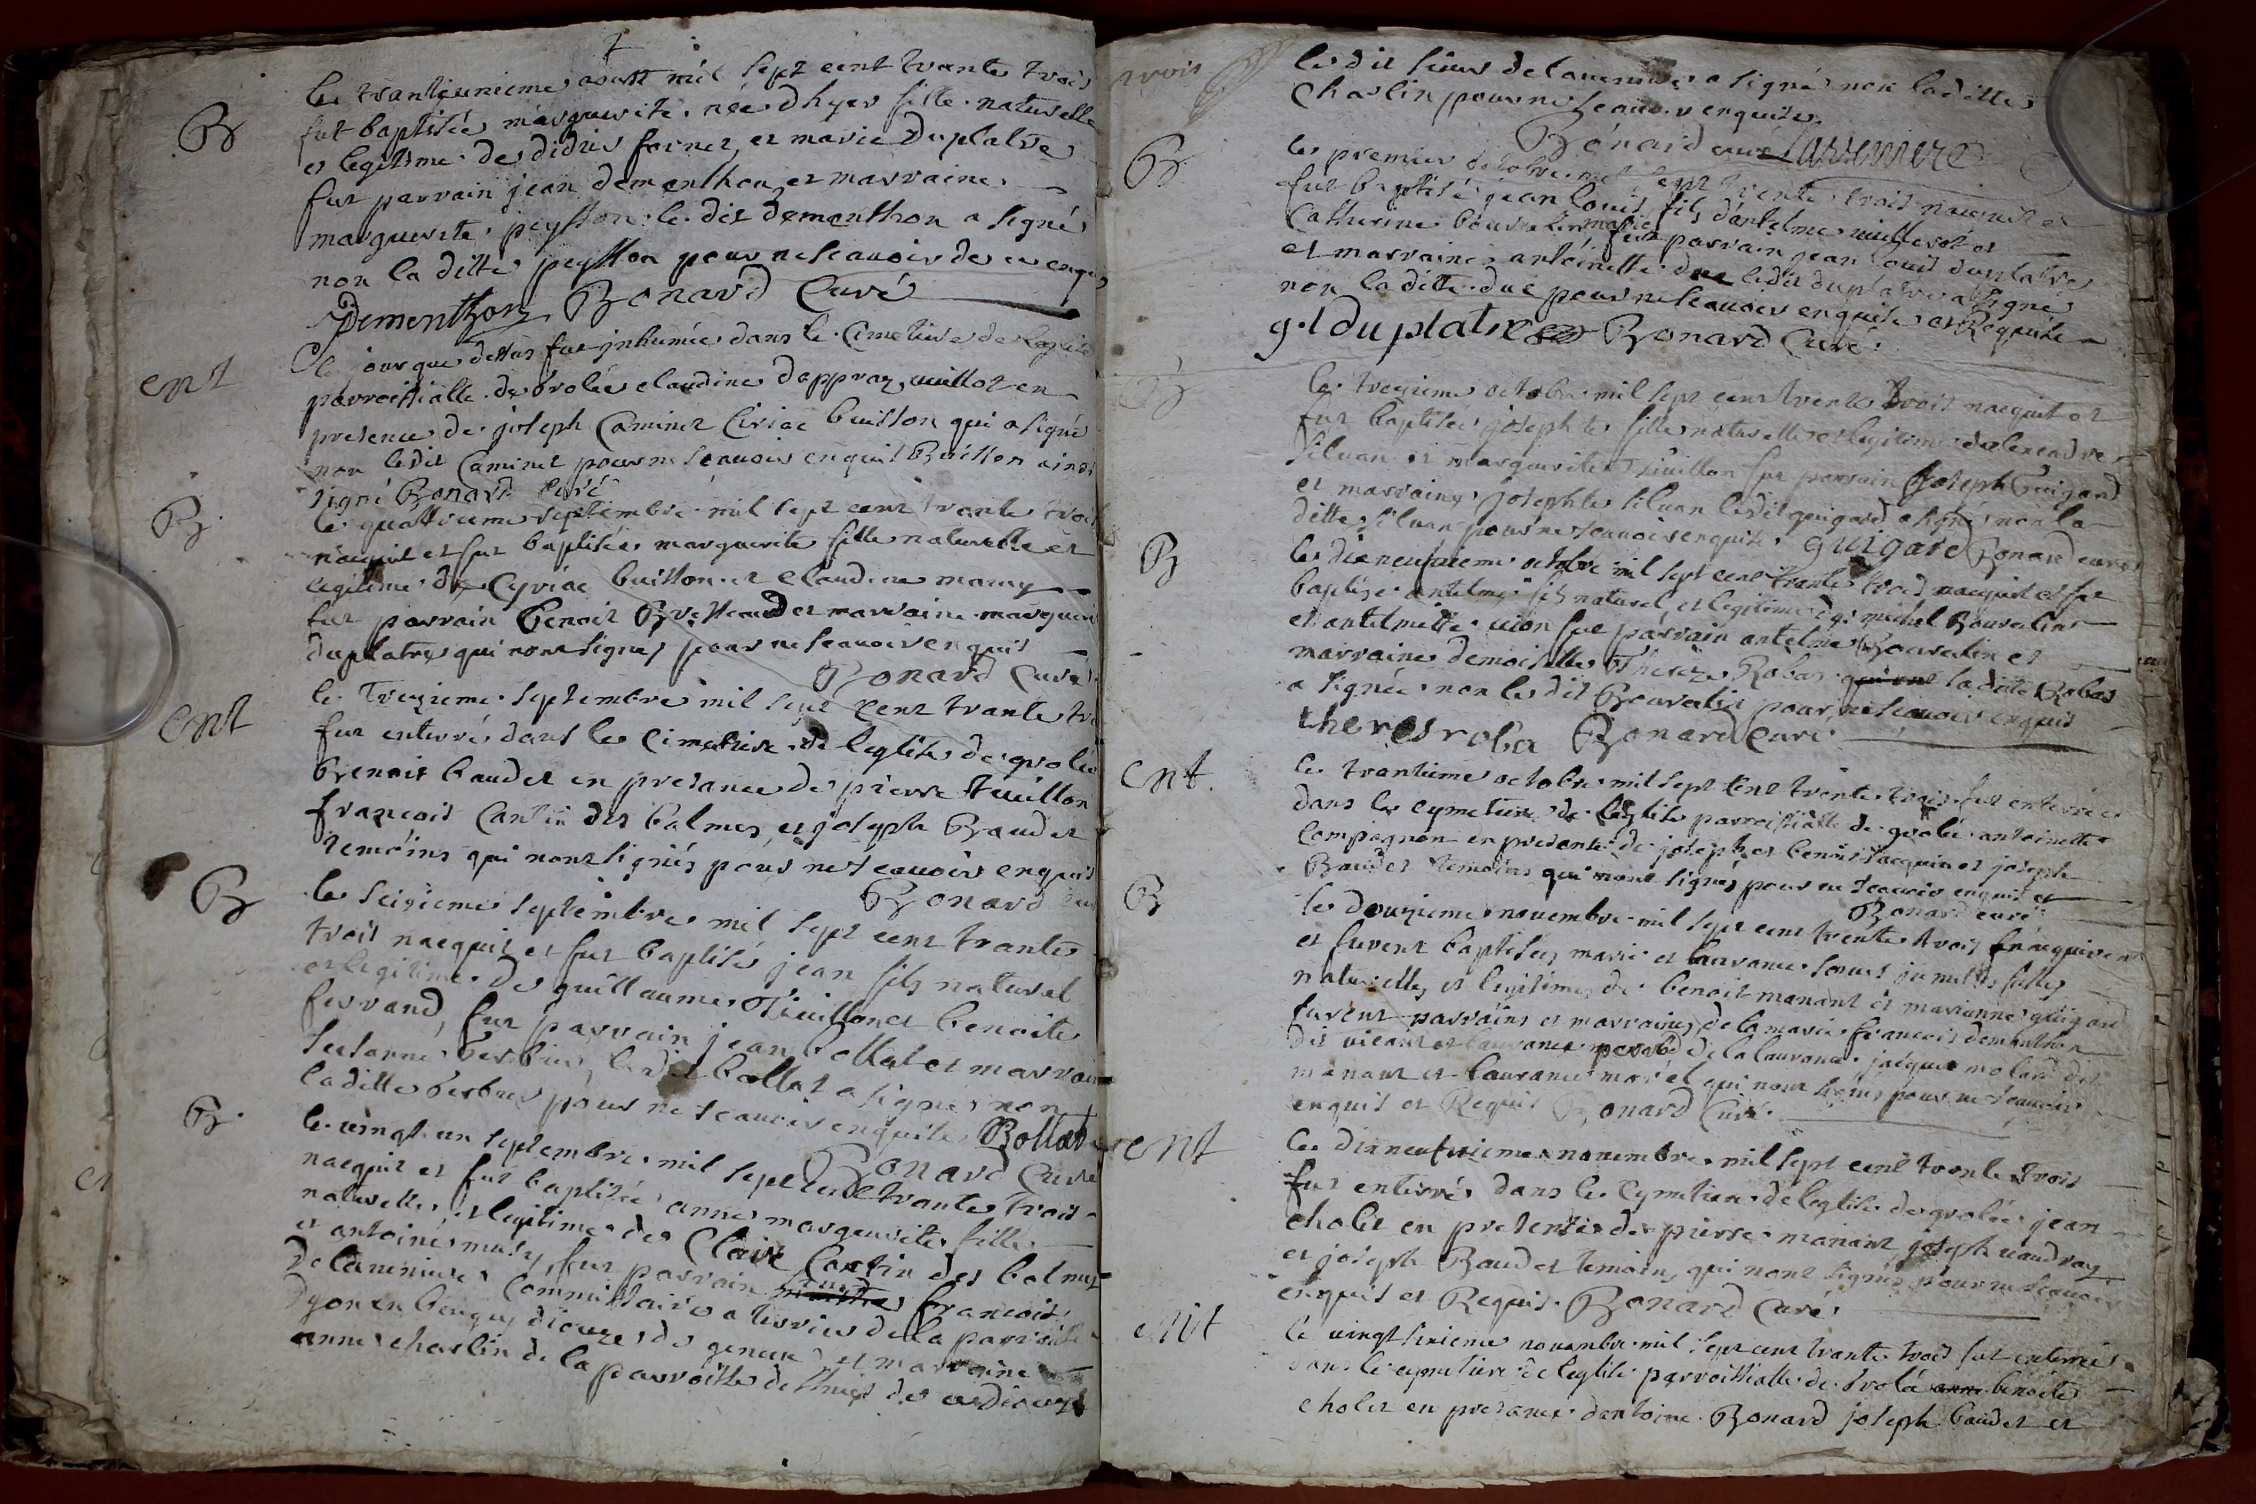 le trantieunieme aoust mil sept cent trante trois
B
fut baptisée marguerite née d'hyer fille naturelle
et legitime de didier fornet et marie Duplatre
fut parrain jean dementhon et marraine
marguerite peysson le dit dementhon a signé
non la ditte peysson pour ne scauoir de ce enquis
Dementhon Bonard Curé
le jour que dessus fut inhumée dans le Cimetiere de leglise
ent
parroissialle de Grolée claudine dappraz uuillot en
presence de joseph Caminet Ciriac buisson qui a signé
non ledit Caminet pour ne scauoir enquis Buisson ainsi
signé Bonard curé
B
le quattrieme septembre mil sept cent trante trois
nacquit et fut baptisée marguerite fille naturelle et
legitime de Cyriac buisson et claudine mamy
fut parrain benoit Brasseaud et marraine marguerite
duplatre qui nont signez pour ne scauoir enquis
Bonard Curé
ent
le treizieme septembre mil sept cent trante trois
fut enterré dans le Cimetiere de leglise de grolée
Benoit baudet en presance de pierre Tuillon
francois Cantin des balmes et joseph Baudet
temoins qui nont signés pour ne scauoir enquis
Bonard
B
le seizieme septembre mil sept cent trante
trois nacquit et fut baptisé jean fils naturel
et legitime de guillaume Tiuillon et benoite
ferrand, fut parrain jean bollat et marraine
Susanne berbier ledit bollat a signé non
laditte berbier pour ne scauoir enquise Bollat
Bonard Curé
B
le vingt un septembre mil sept cent trante trois
nacquit et fut baptisée anne marguerite fille
naturelle et legitime de Claire Cantin des balmes
et antoine musy fut parrain francois
De laueniere Commissaire a terrier de la parroisse
Dyon en beugey dioceze de geneue et marraine
anne charlin de la parroisse de du dioceze
le dit sieur de lauenniere a signé non laditte
Charlin pour ne scauoir enquise
Bénard curé Lauenniere
B
le premier octobre mil sept trente trois nacquit et
fut baptisé jean louis fils dantelme uuillerot et
Catherine bouuelin marie fut parrain jean louis duplatre
et marraine antoinette duc ledit duplatre a signé
non la ditte duc pour ne scauoir enquise et Requise
g.l duplatre Bonard Curé
B
le treizieme octobre mil sept cent trente trois nacquit et
fut baptisée josephte fille naturelle et legitime dalexandre
siluan et marguerite Tiuillon fut parrain joseph Guigard
et marraine josephte siluan ledit guigard a signé non la
ditte siluan pour ne scauoir enquise guigard Bonard curé
B
le dixneufuieme octobre mil sept cent trante trois nacquit et fut
baptizé antelme fils naturel et legitime de michel Bouuelin
et antelmette uion fut parrain antelme Bouuelin et
marraine demoiselle Therèze Robas laditte Robas
a signée non le dit Bouuelin pour ne scauoir enquis
theres roba Bonard Curé
ent.
le trantieme octobre mil sept cent trente trois fut enterrée
dans le cymetiere de leglise parroissialle de grolée antoinette
Compagnon en presante de joseph et benoit Jacquin et joseph
Baudet temoins qui nont signés pour ne scauoir enquis et
Bonard curé
B
le douzieme nouembre mil sept cent trente trois nacquirent
et furent baptisées marie et laurance soeurs jumelles filles
naturelles et legitimes de benoit manant et marianne guigard
furent parrains et marraines de la marie francois dementhon
dit uicaire et laurance de la laurance jacques molard dit
manant et laurance morel qui nont signés pour ne scauoir
enquis et Requis Bonard Curé
ent
le dixneufuieme nouembre mil sept cent trante trois
fut enterré dans le Cymetiere de leglise de grolée jean
cholet en presence de pierre manant joseph uaudray
et joseph Baudet temoins qui nont signés pour ne scauoir
enquis et Requis. Bonard Curé
ent
le vingt sixieme nouembre mil sept cent trante trois fut enterrée
dans le cymetiere de leglise parroissialle de Grolée benoite
cholet en presance dantoine Bonard joseph baudet et